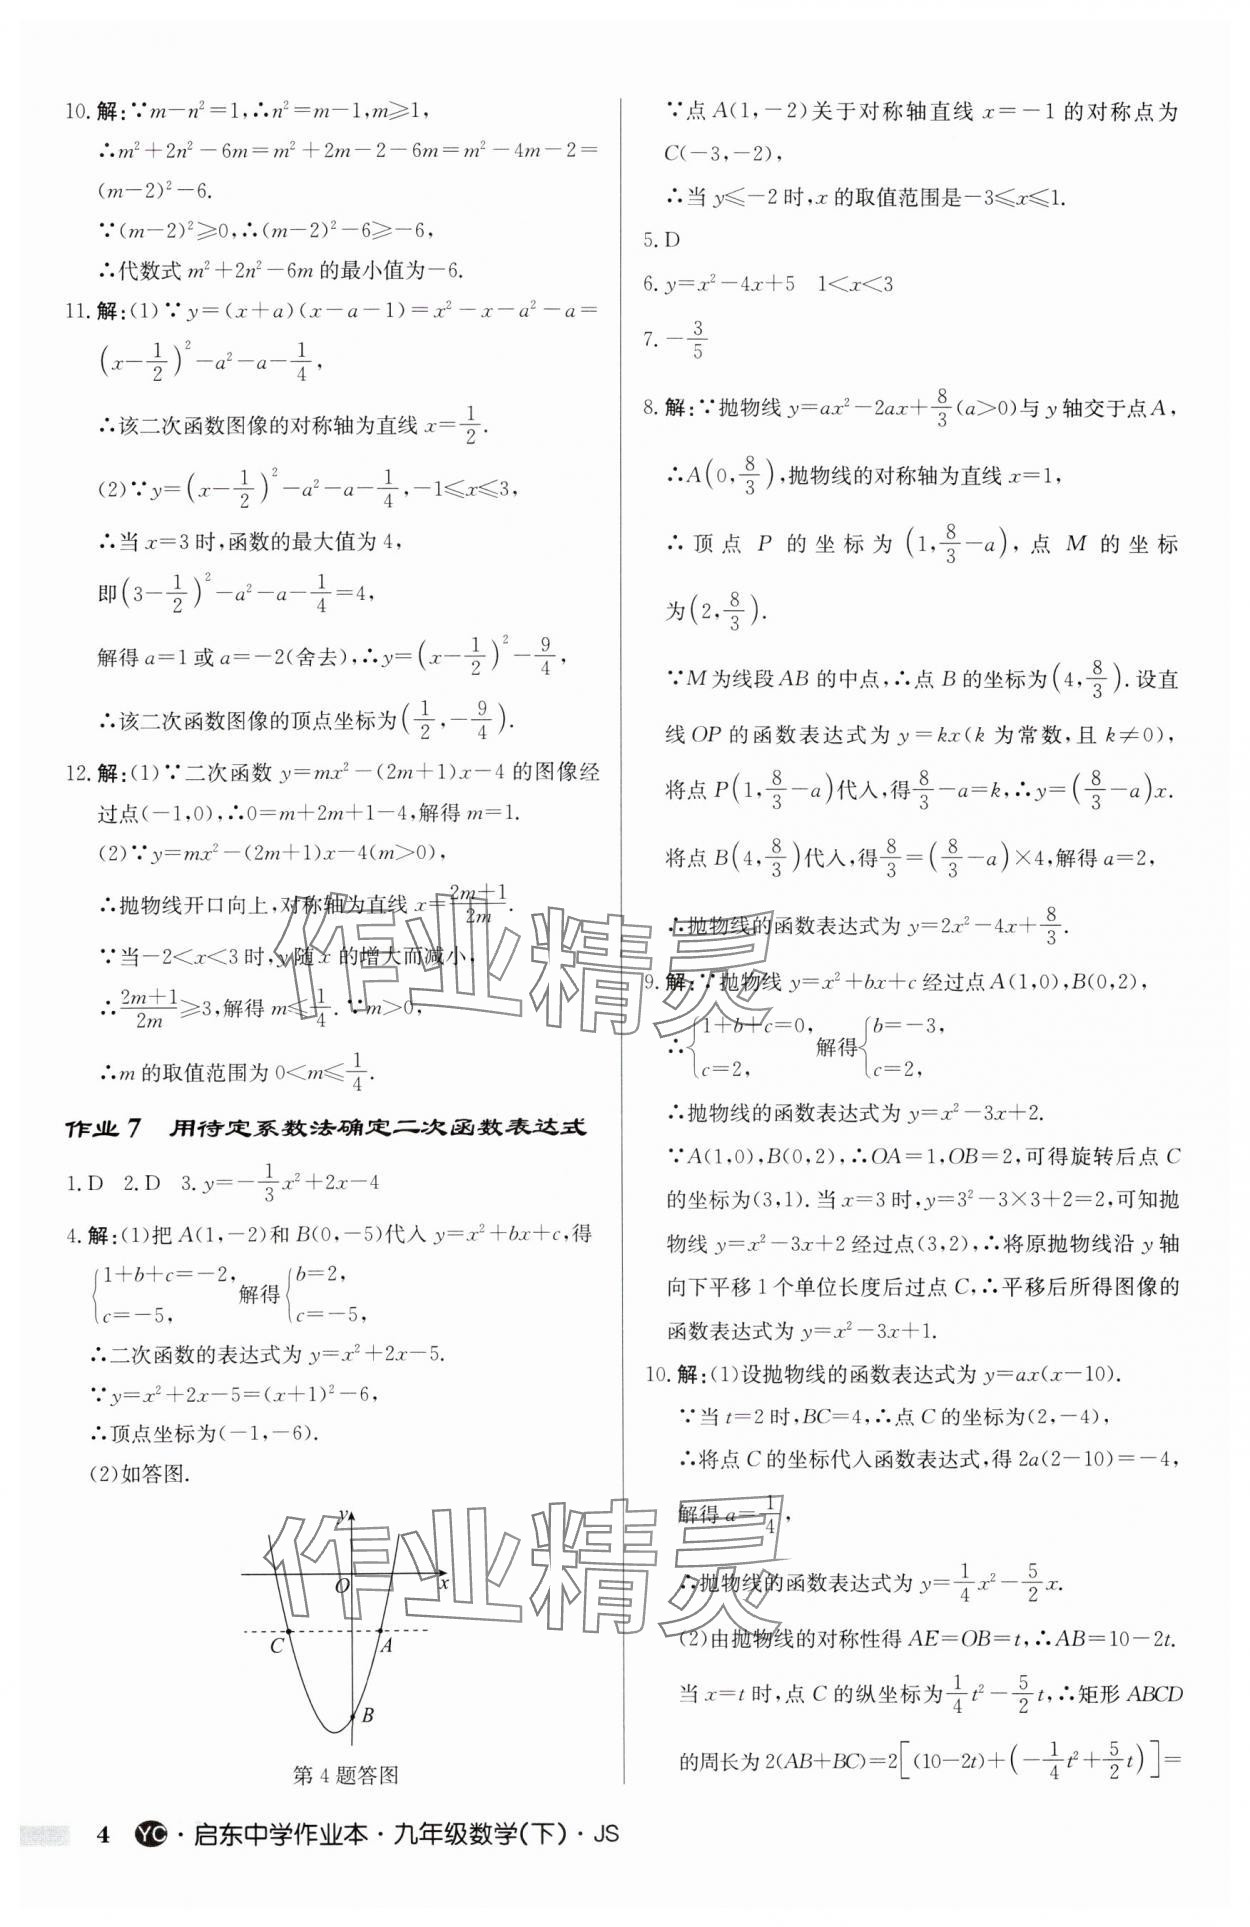 10. 解:∵m-n²=1,∴n²=m-1,m≥1,
∴m²+2n²-6m=m²+2m-2-6m=m²-4m-2=
(m-2)²-6.
∵(m-2)²≥0,∴(m-2)²-6≥-6,
∴代数式 m²+2n²-6m 的最小值为-6.
11. 解:(1)∵y=(x+a)(x-a-1)=x²-x-a²-a=
(x-1/2)²-a²-a-1/4,
∴该二次函数图像的对称轴为直线 x=1/2.
(2)∵y=(x-1/2)²-a²-a-1/4,-1≤x≤3,
∴当 x=3 时,函数的最大值为 4,
即(3-1/2)²-a²-a-1/4=4,
解得 a=1 或 a=-2(舍去),∴y=(x-1/2)²-9/4,
∴该二次函数图像的顶点坐标为(1/2,-9/4).
12. 解:(1)∵二次函数 y=mx²-(2m+1)x-4 的图像经
过点(-1,0),∴0=m+2m+1-4,解得 m=1.
(2)∵y=mx²-(2m+1)x-4(m>0),
∴抛物线开口向上,对称轴为直线 x=(2m+1)/2m.
∵当-2<x<3 时,y 随 x 的增大而减小,
∴(2m+1)/2m≥3,解得 m≤1/4.∵m>0,
∴m 的取值范围为 0<m≤1/4.
作业 7 用待定系数法确定二次函数表达式
1. D 2. D 3. y=-1/3x²+2x-4
4. 解:(1)把 A(1,-2)和 B(0,-5)代入 y=x²+bx+c,得
{1+b+c=-2, c=-5, 解得 {b=2, c=-5,
∴二次函数的表达式为 y=x²+2x-5.
∵y=x²+2x-5=(x+1)²-6,
∴顶点坐标为(-1,-6).
(2)如答图.
y
O x
C A
B
第 4 题答图
∵点 A(1,-2)关于对称轴直线 x=-1 的对称点为
C(-3,-2),
∴当 y≤-2 时,x 的取值范围是-3≤x≤1.
5. D
6. y=x²-4x+5 1<x<3
7. -3/5
8. 解:∵抛物线 y=ax²-2ax+8/3(a>0)与 y 轴交于点 A,
∴A(0,8/3),抛物线的对称轴为直线 x=1,
∴顶点 P 的坐标为(1,8/3-a),点 M 的坐标
为(2,8/3).
∵M 为线段 AB 的中点,∴点 B 的坐标为(4,8/3).设直
线 OP 的函数表达式为 y=kx(k 为常数,且 k≠0),
将点 P(1,8/3-a)代入,得8/3-a=k,∴y=(8/3-a)x.
将点 B(4,8/3)代入,得8/3=(8/3-a)×4,解得 a=2,
∴抛物线的函数表达式为 y=2x²-4x+8/3.
9. 解:∵抛物线 y=x²+bx+c 经过点 A(1,0),B(0,2),
∴{1+b+c=0, c=2, 解得 {b=-3, c=2,
∴抛物线的函数表达式为 y=x²-3x+2.
∵A(1,0),B(0,2),∴OA=1,OB=2,可得旋转后点 C
的坐标为(3,1).当 x=3 时,y=3²-3×3+2=2,可知抛
物线 y=x²-3x+2 经过点(3,2),∴将原抛物线沿 y 轴
向下平移 1 个单位长度后过点 C,∴平移后所得图像的
函数表达式为 y=x²-3x+1.
10. 解:(1)设抛物线的函数表达式为 y=ax(x-10).
∵当 t=2 时,BC=4,∴点 C 的坐标为(2,-4),
∴将点 C 的坐标代入函数表达式,得 2a(2-10)=-4,
解得 a=1/4,
∴抛物线的函数表达式为 y=1/4x²-5/2x.
(2)由抛物线的对称性得 AE=OB=t,∴AB=10-2t.
当 x=t 时,点 C 的纵坐标为1/4t²-5/2t,∴矩形 ABCD
的周长为 2(AB+BC)=2[(10-2t)+(-1/4t²+5/2t)]=
4 YC·启东中学作业本·九年级数学(下)·JS
作业精灵
作业精灵